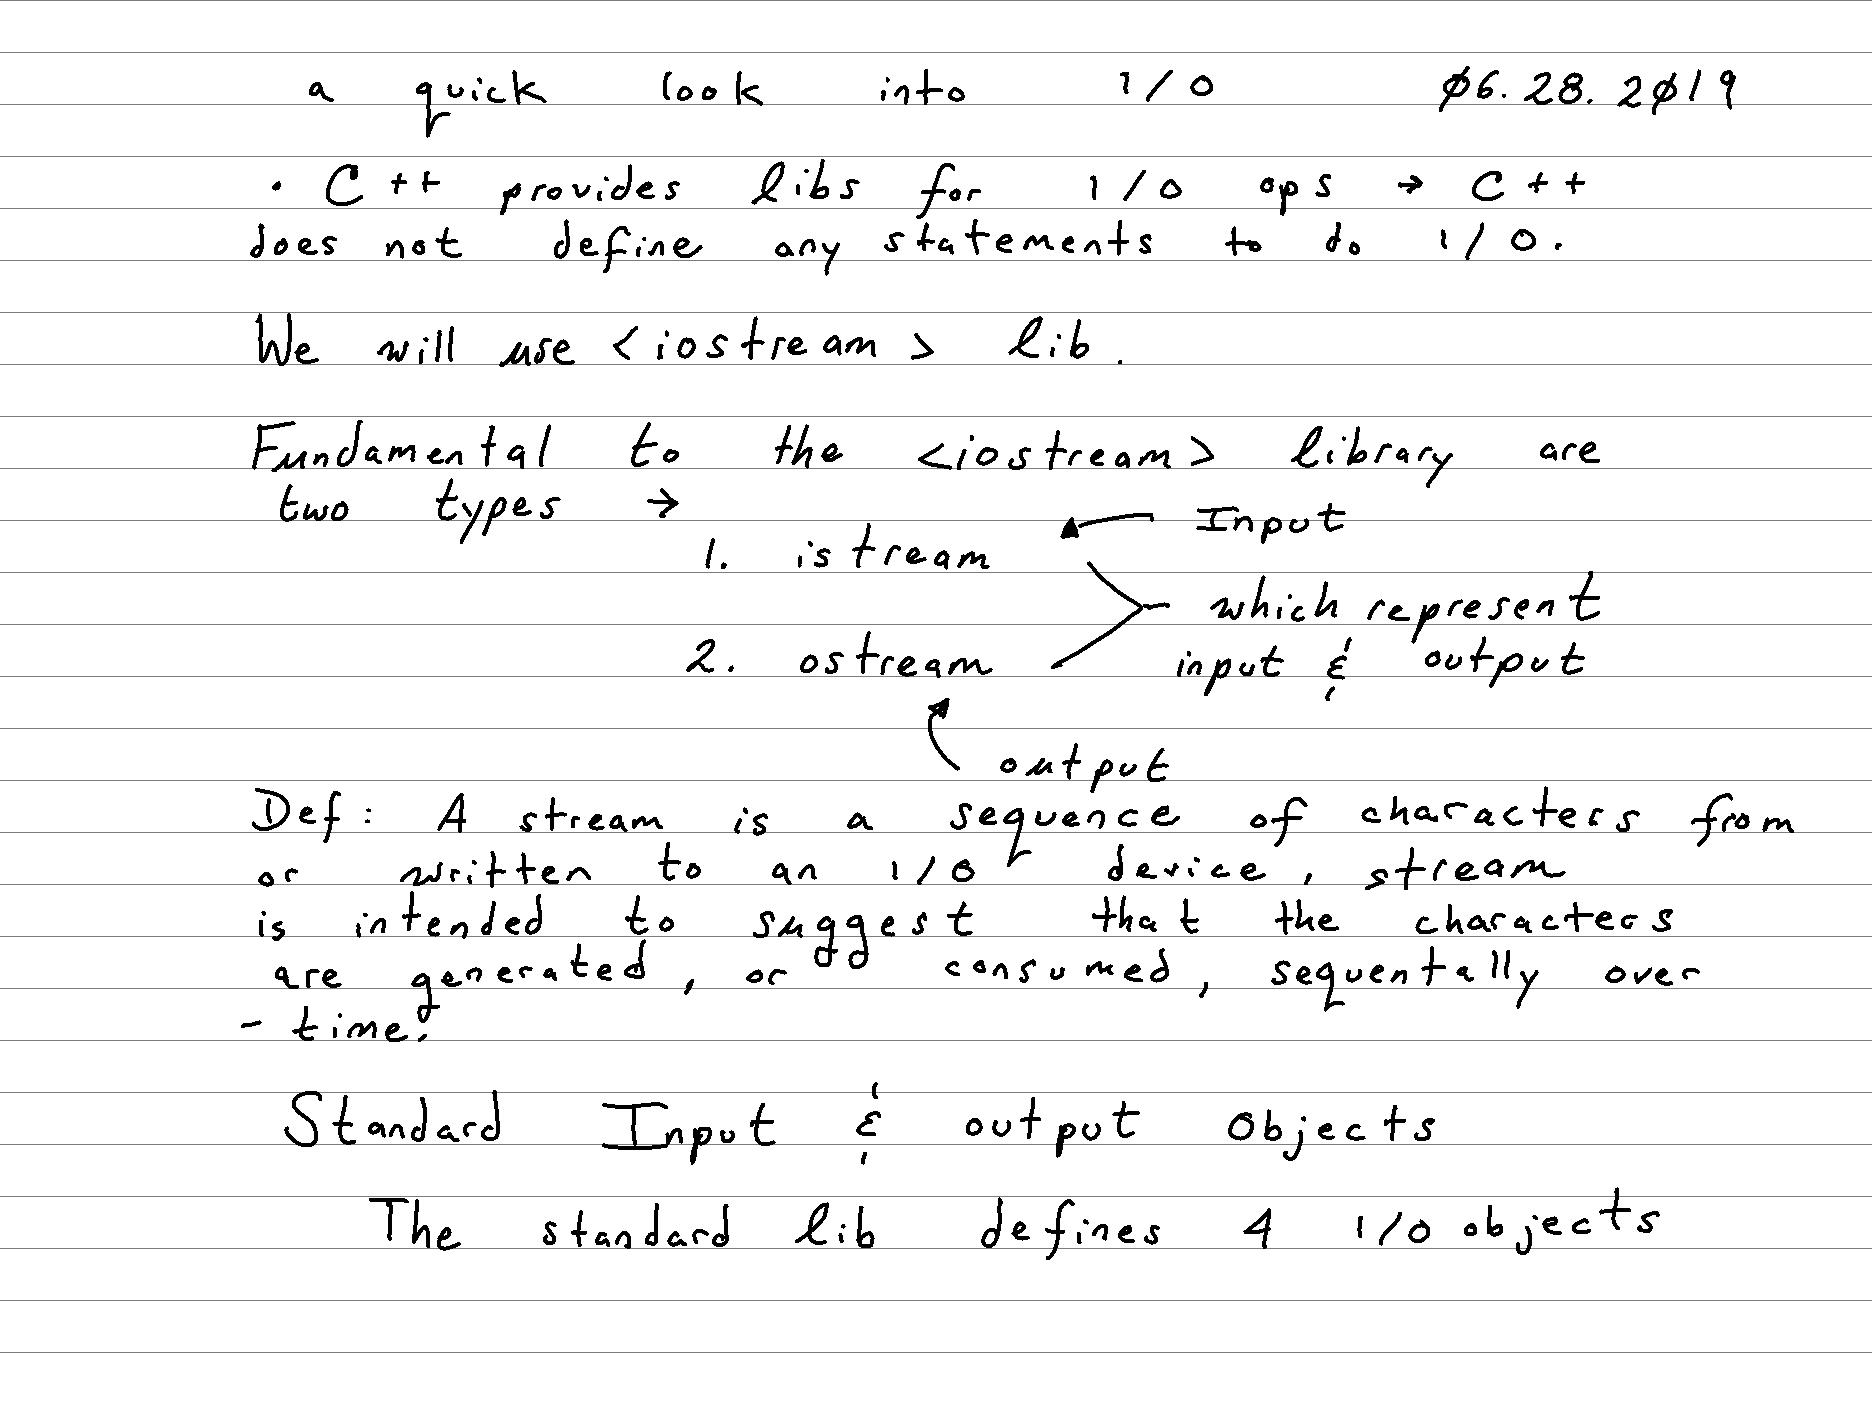 a quick look into I/O 06.28.2019
· C++ provides libs for I/O ops → C++
does not define any statements to do I/O.
We will use <iostream> lib.
Fundamental to the <iostream> library are
two types →
Input
1. istream
which represent
2. ostream
input & output
output
Def: A stream is a sequence of characters from
or written to an I/O device, stream
is intended to suggest that the characters
are generated, or consumed, sequentally over
- time.
Standard Input & output Objects
The standard lib defines 4 I/O objects